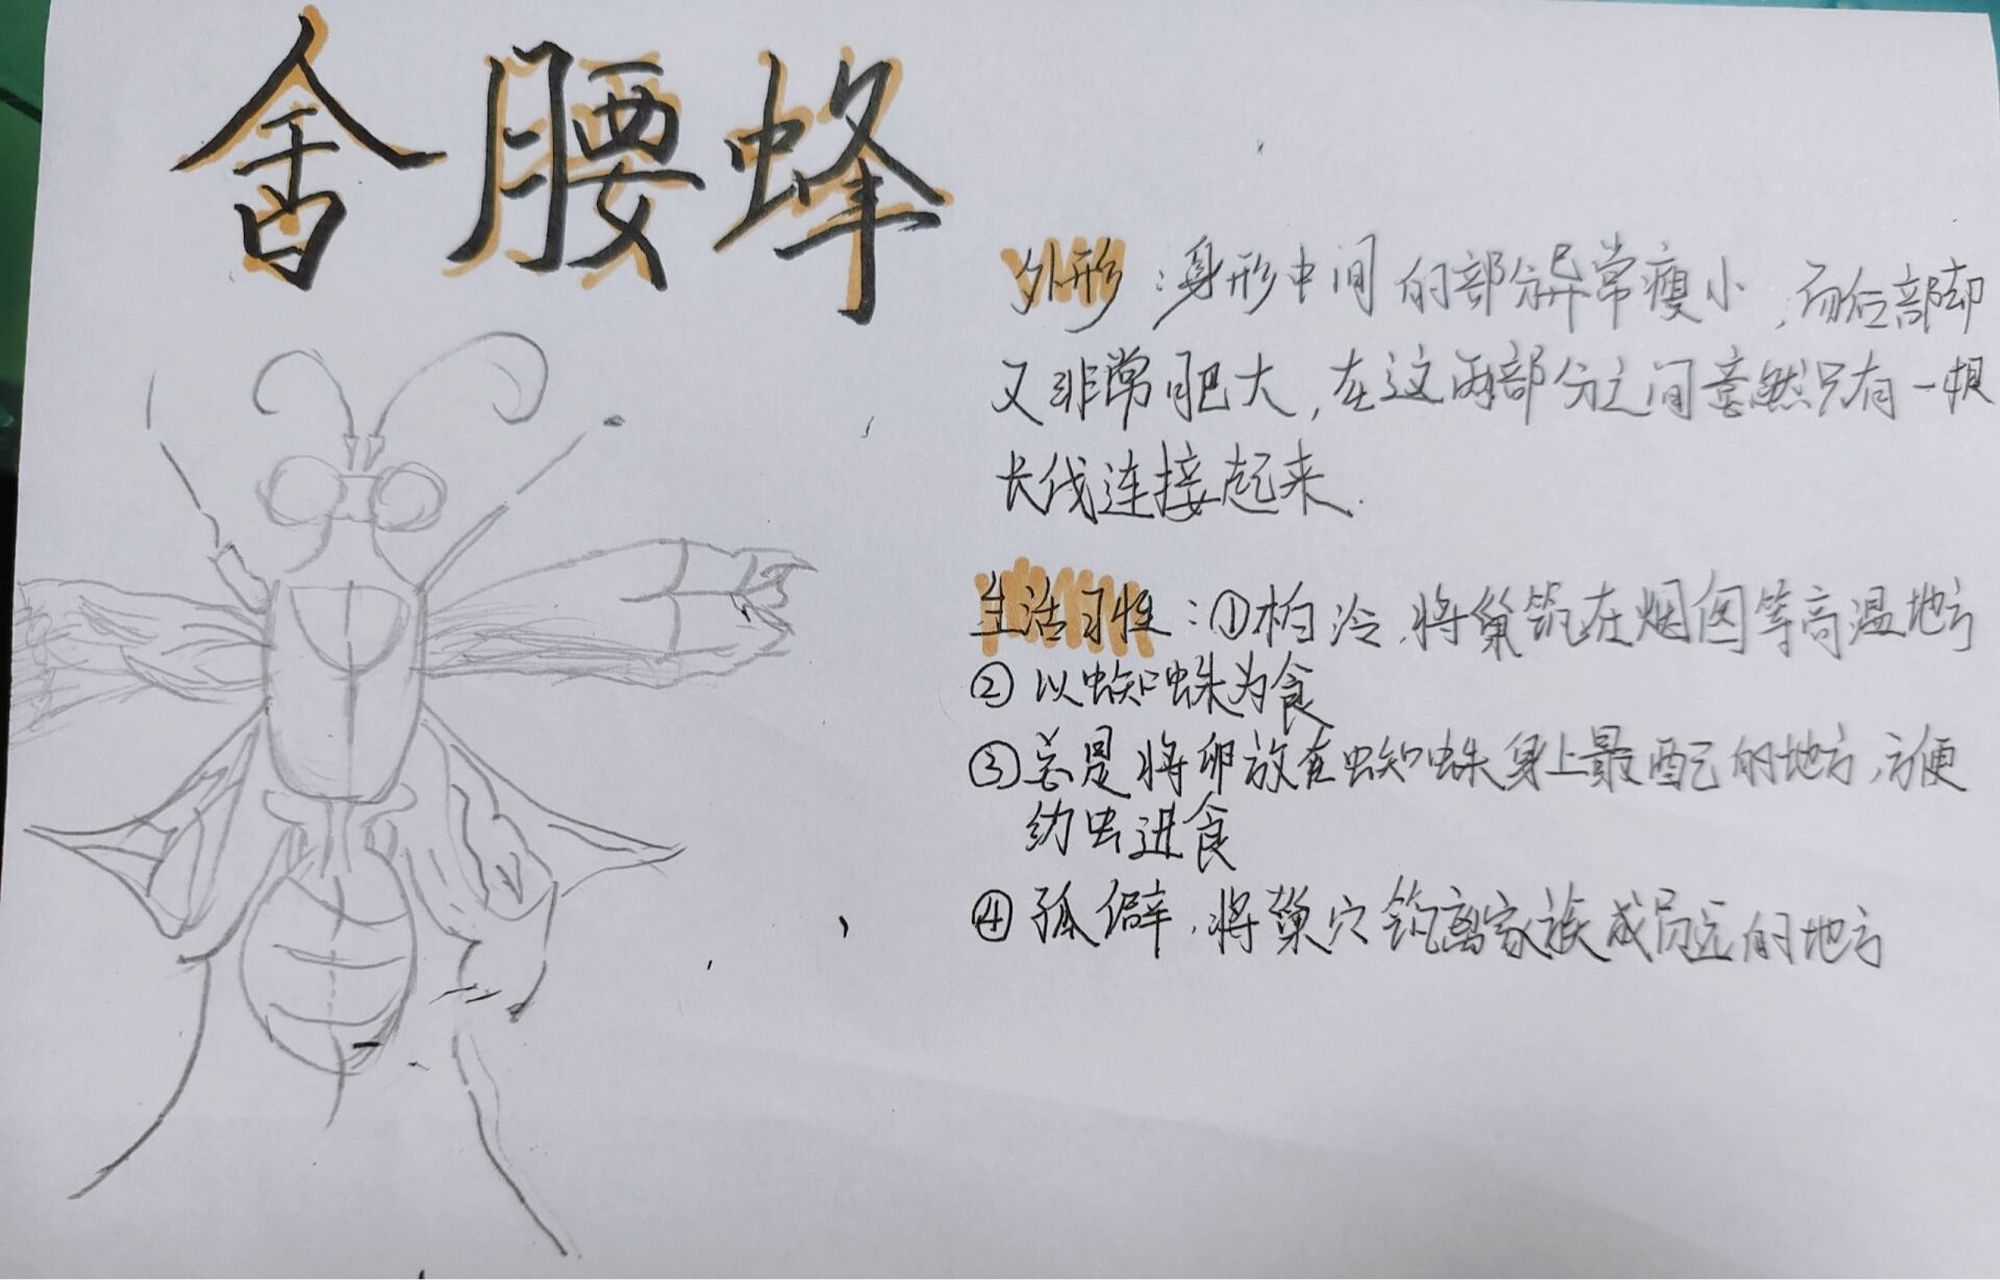 舍腰蜂
外形：身形中间的部分异常瘦小，而后部却
又非常肥大，在这两部分之间竟然只有一根
长线连接起来.
生活习性：①怕冷，将巢筑在烟囱等高温地方
②以蜘蛛为食
③总是将卵放在蜘蛛身上最配的地方，方便
幼虫进食
④孤僻，将巢穴筑离家族成员远的地方